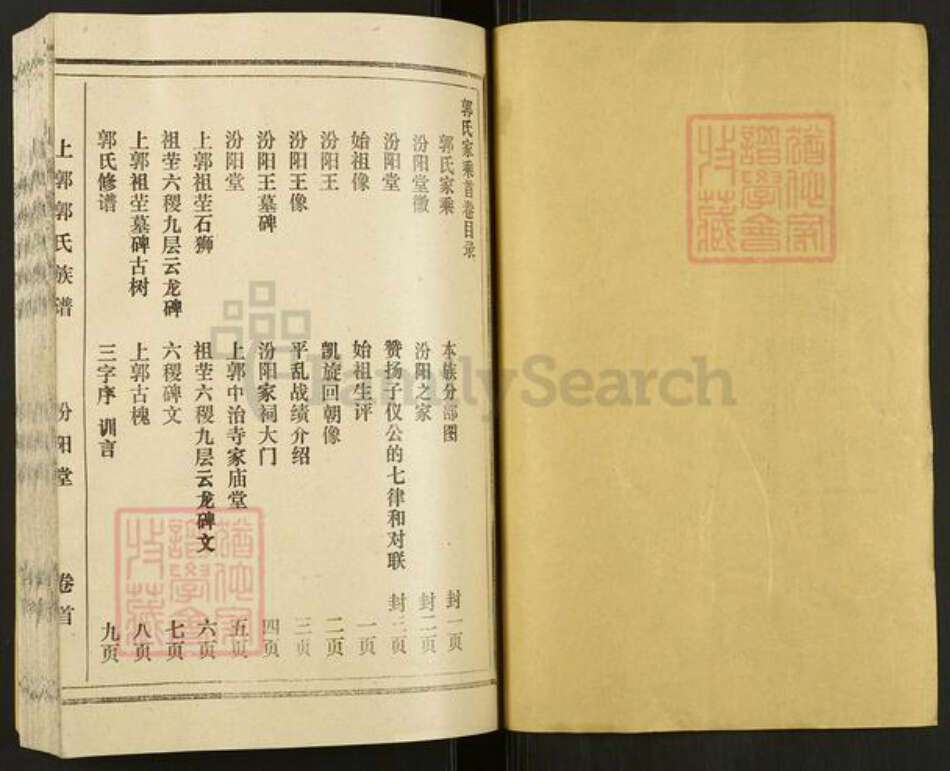 郭氏家乘首卷目录
郭氏家乘 本族分部图 封一页
汾阳堂徽 汾阳之家 封二页
汾阳堂 赞扬子仪公的七律和对联 封三页
始祖像 始祖生评 一页
汾阳王 凯旋回朝像 二页
汾阳王像 平乱战绩介绍 三页
汾阳王墓碑 汾阳家祠大门 四页
汾阳堂 上郭中治寺家庙堂 五页
上郭祖茔石狮 祖茔六稷九层云龙碑文 六页
祖茔六稷九层云龙碑 六稷碑文 七页
上郭祖茔墓碑古树 上郭古槐 八页
郭氏修谱 三字序 训言 九页
上郭郭氏族谱 汾阳堂 卷首
FamilySearch